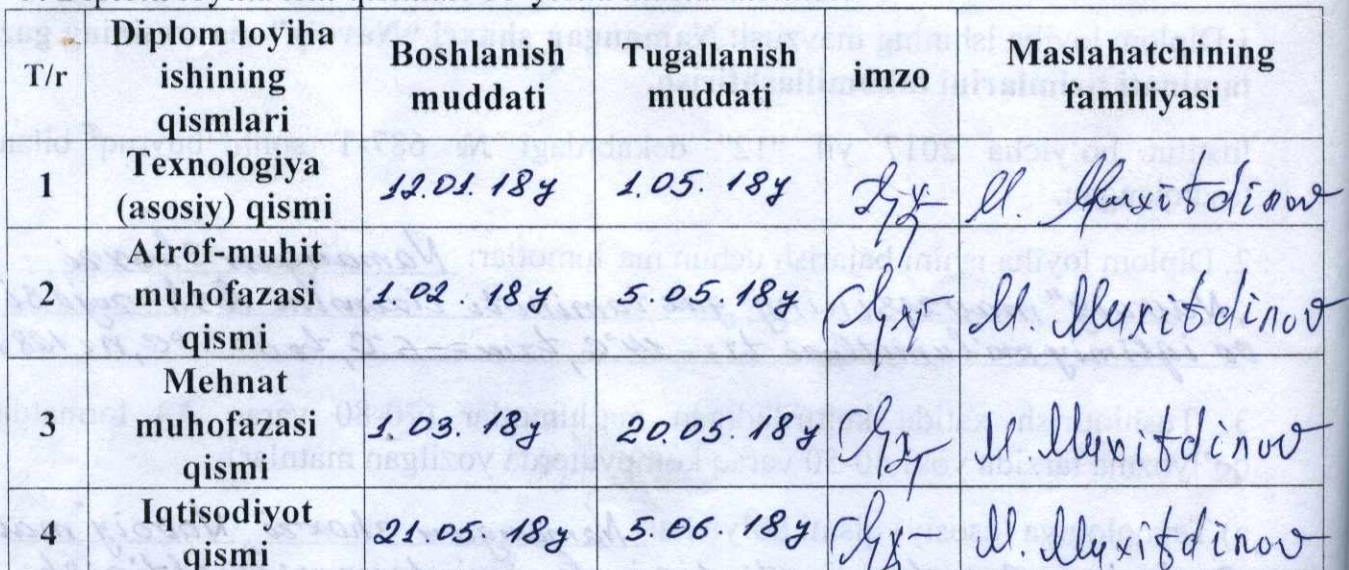 T/r Diplom loyiha ishining qismlari Boshlanish muddati Tugallanish muddati imzo Maslahatchining familiyasi
1 Texnologiya (asosiy) qismi 12.01. 18y 1.05. 18y M. Muxitdinov
2 Atrof-muhit muhofazasi qismi 1.02. 18y 5.05. 18y M. Muxitdinov
3 Mehnat muhofazasi qismi 1.03. 18y 20.05. 18y M. Muxitdinov
4 Iqtisodiyot qismi 21.05. 18y 5.06. 18y M. Muxitdinov